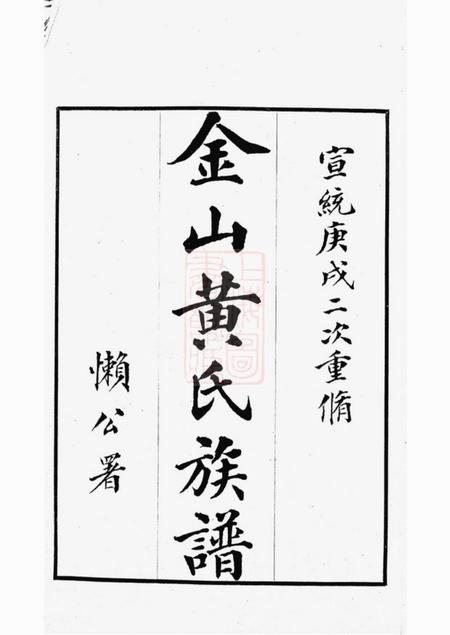 宣統庚戌二次重脩
金山黃氏族譜
懶公署